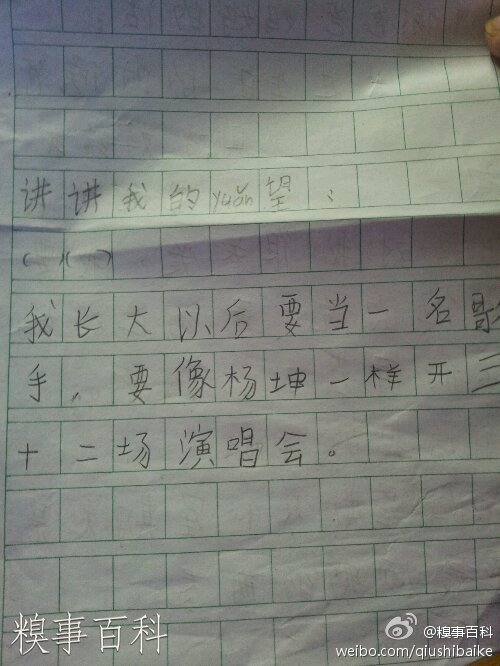 讲讲我的yuǎn望：
（ （ ）
我长大以后要当一名歌
手，要像杨坤一样开三
十二场演唱会。
糗事百科
@糗事百科
weibo.com/qiushibaike